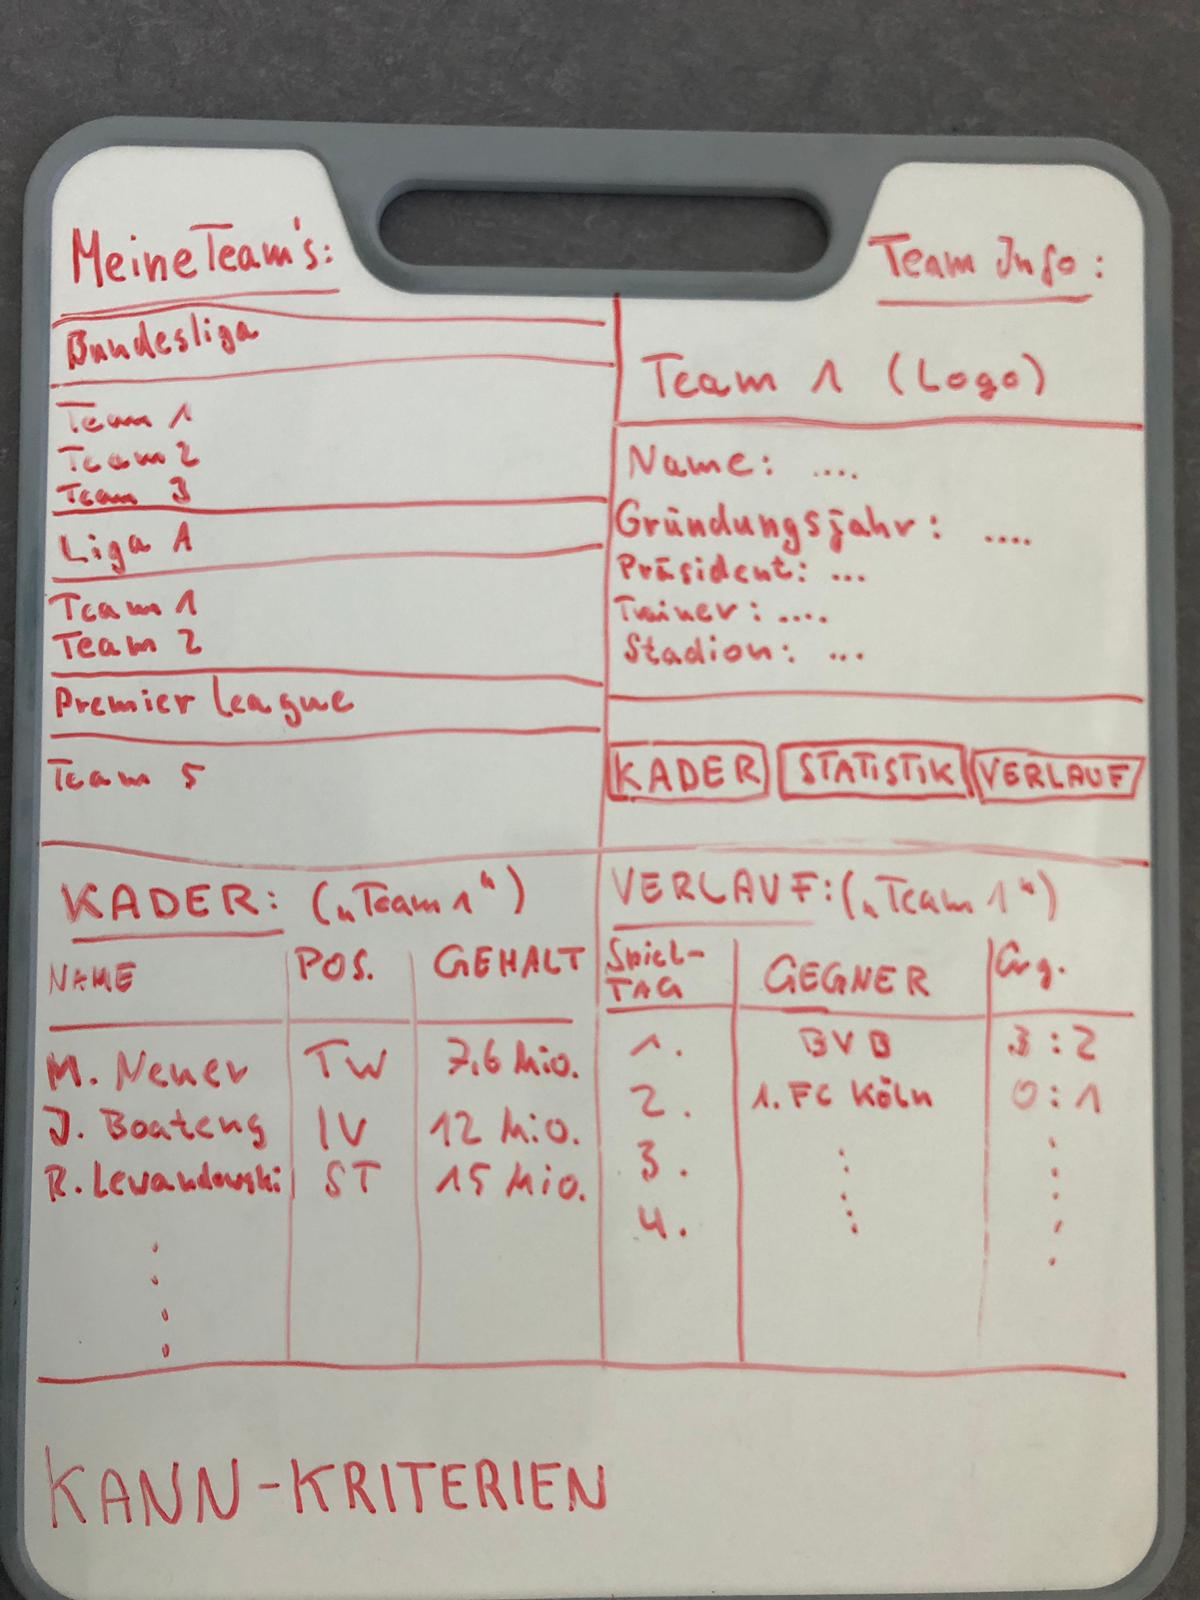 Meine Team's:
Bundesliga
Team 1
Team 2
Team 3
Liga A
Team 1
Team 2
Premier League
Team 5
Team Info:
Team 1 (Logo)
Name: ....
Gründungsjahr: ....
Präsident: ...
Trainer: ....
Stadion: ...
KADER STATISTIK VERLAUF
KADER: („Team 1“)
NAME POS. GEHALT
M. Neuer TW 7,6 Mio.
J. Boateng IV 12 Mio.
R. Lewandowski ST 15 Mio.
VERLAUF: („Team 1“)
Spiel-
TAG GEGNER Erg.
1. BVB 3:2
2. 1. FC Köln 0:1
3.
4.
KANN-KRITERIEN